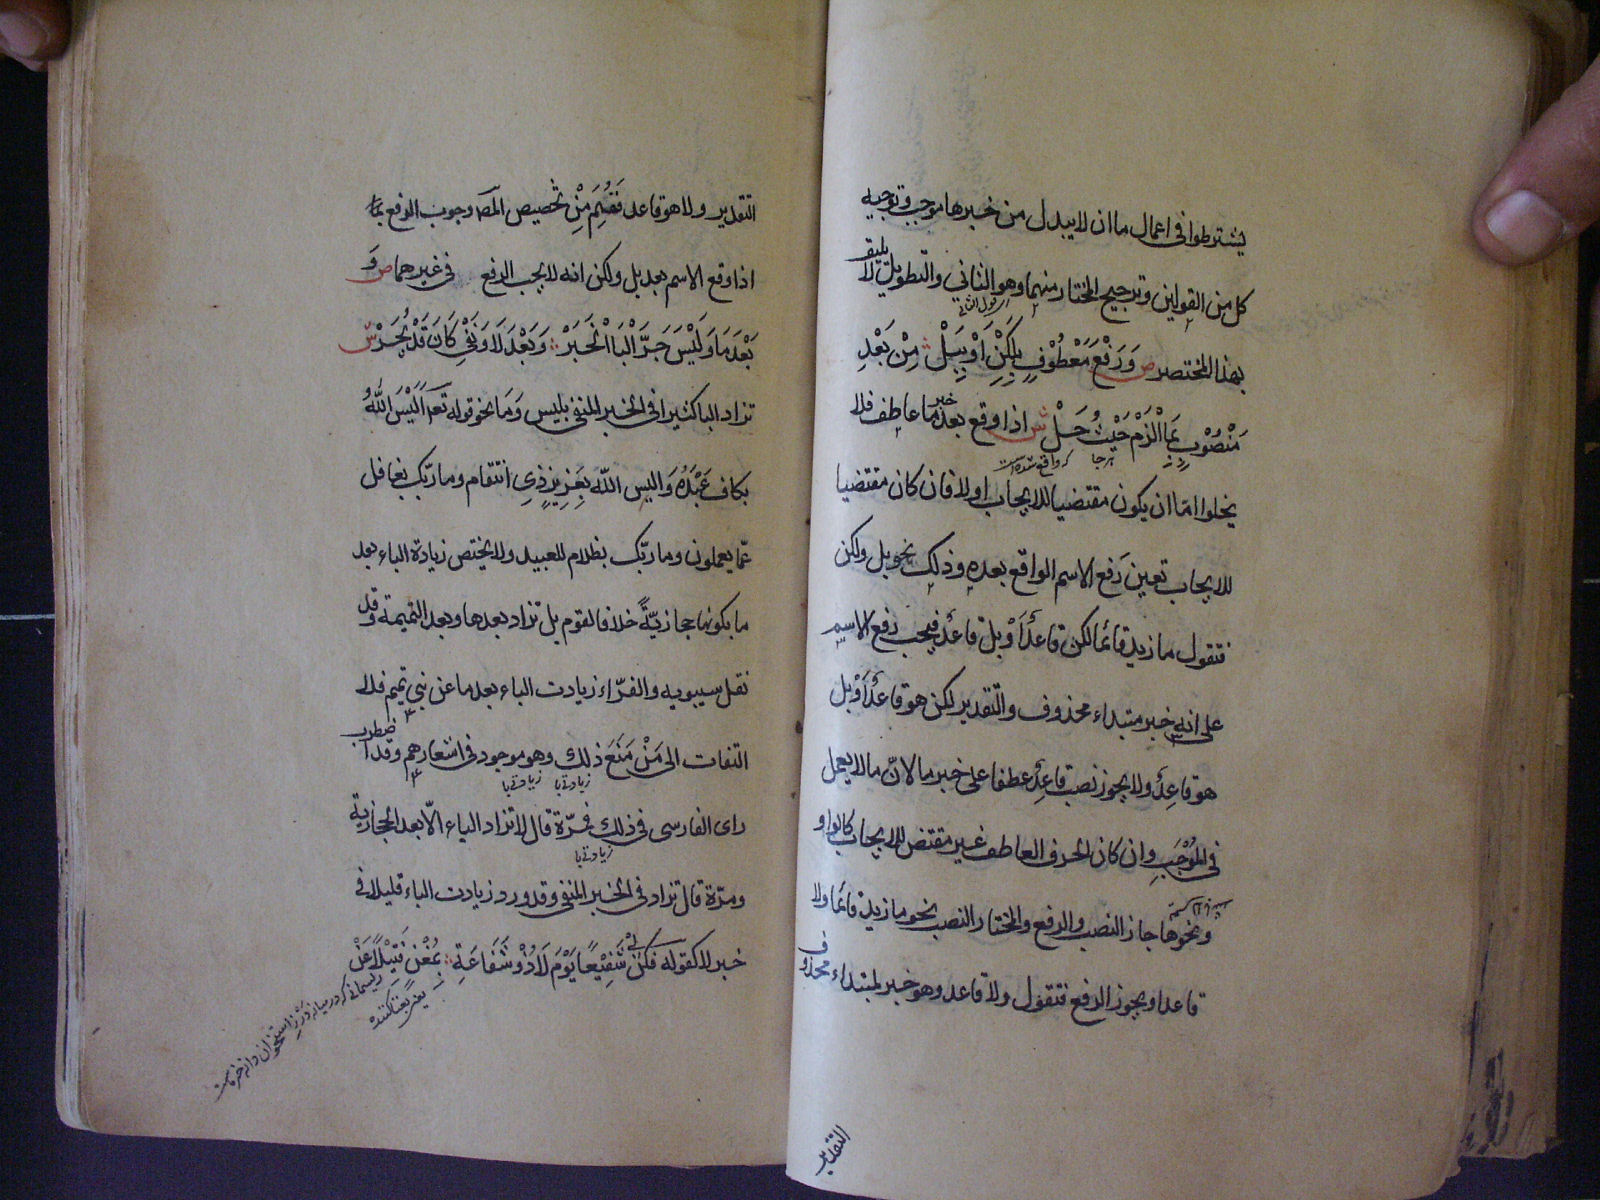 يشترطوا في اعمال ما ان لا يبدل من خبرها موجب وتوجيه
كل من القولين وترجيح المختار منهما وهو الثاني والتطويل لا يليق
بهذا المختصر ص وَرَفْعَ مَعْطُوْفٍ بِلكِنْ اَوْ بِبَلْ مِنْ بَعْدِ
مَنْصُوْبٍ بِمَا اَلْزَمْ حَيْثُ حَلْ ش اذا وقع بعد خبر ما عاطف فلا
يخلوا امّا ان يكون مقتضيا للايجاب او لا فان كان مقتضيا
للايجاب تعين رفع الاسم الواقع بعده وذلك نحو بل ولكن
فتقول ما زيد قائما لكن قاعدٌ اَوْ بل قاعدٌ فيجب رفع الاسم
على انه خبر مبتداء محذوف والتقدير لكن هو قاعدٌ اَوْ بل
هو قاعِدٌ ولا يجوز نصب قاعِدٌ عطفا على خبر ما لانّ ما لا يعمل
في المُوْجَبِ وان كان الحرف العاطف غير مقتض للايجاب كالواو
ونحوها جاز النصب والرفع والمختار النصب نحو ما زيد قائما ولا
قاعدا ويجوز الرفع فتقول ولا قاعد وهو خبر لمبتداء محذوف
التقدير
التقدير ولا هو قاعد فَفُهِمَ مِنْ تخصيص المص وجوب الرفع بما
اذا وقع الاسم بعد بل ولكن انه لا يجب الرفع في غيرهما ص وَ
بَعْدَ مَا وَلَيْسَ جَرَّ الْبَا الْخَبَرْ وَبَعْدَ لَا وَنَفْيِ كَانَ قَدْ يُجَرْ ش
تزاد البا كثيرا في الخبر المنفي بليس وَمَا نحو قوله تعَ اَلَيْسَ اللهُ
بكاف عَبْدَهُ وَاليس الله بِعَزِيزٍ ذِي انتقام وما ربّك بغافل
عمّا يعملون وما ربّك بظلام للعبيد ولا يختص زيادة الباء بعد
ما بكونها حجازيّةً خلافا لقوم بل تزاد بعدها وبعد التميمة وقد
نقل سيبويه والفرّاء زيادت الباء بعد ما عن بني تميم فلا
التفات الى مَنْ مَنَعَ ذلك وهو موجود في اشعارهم وقد اضطرب
زيادتي با زيادتي با
راى الفارسي في ذلك فمرّة قال لا تزاد الباء الّا بعد الحجازية
زيادتي با
ومرّة قال تزاد في الخبر المنفي وقد ورد زيادت الباء قليلا في
خبر لا كقوله فَكُنْ لِيْ شَفِيْعًا يَوْمَ لَا ذُوْ شَفَاعَةٍ بِمُغْنٍ فَتِيْلًا عَنْ